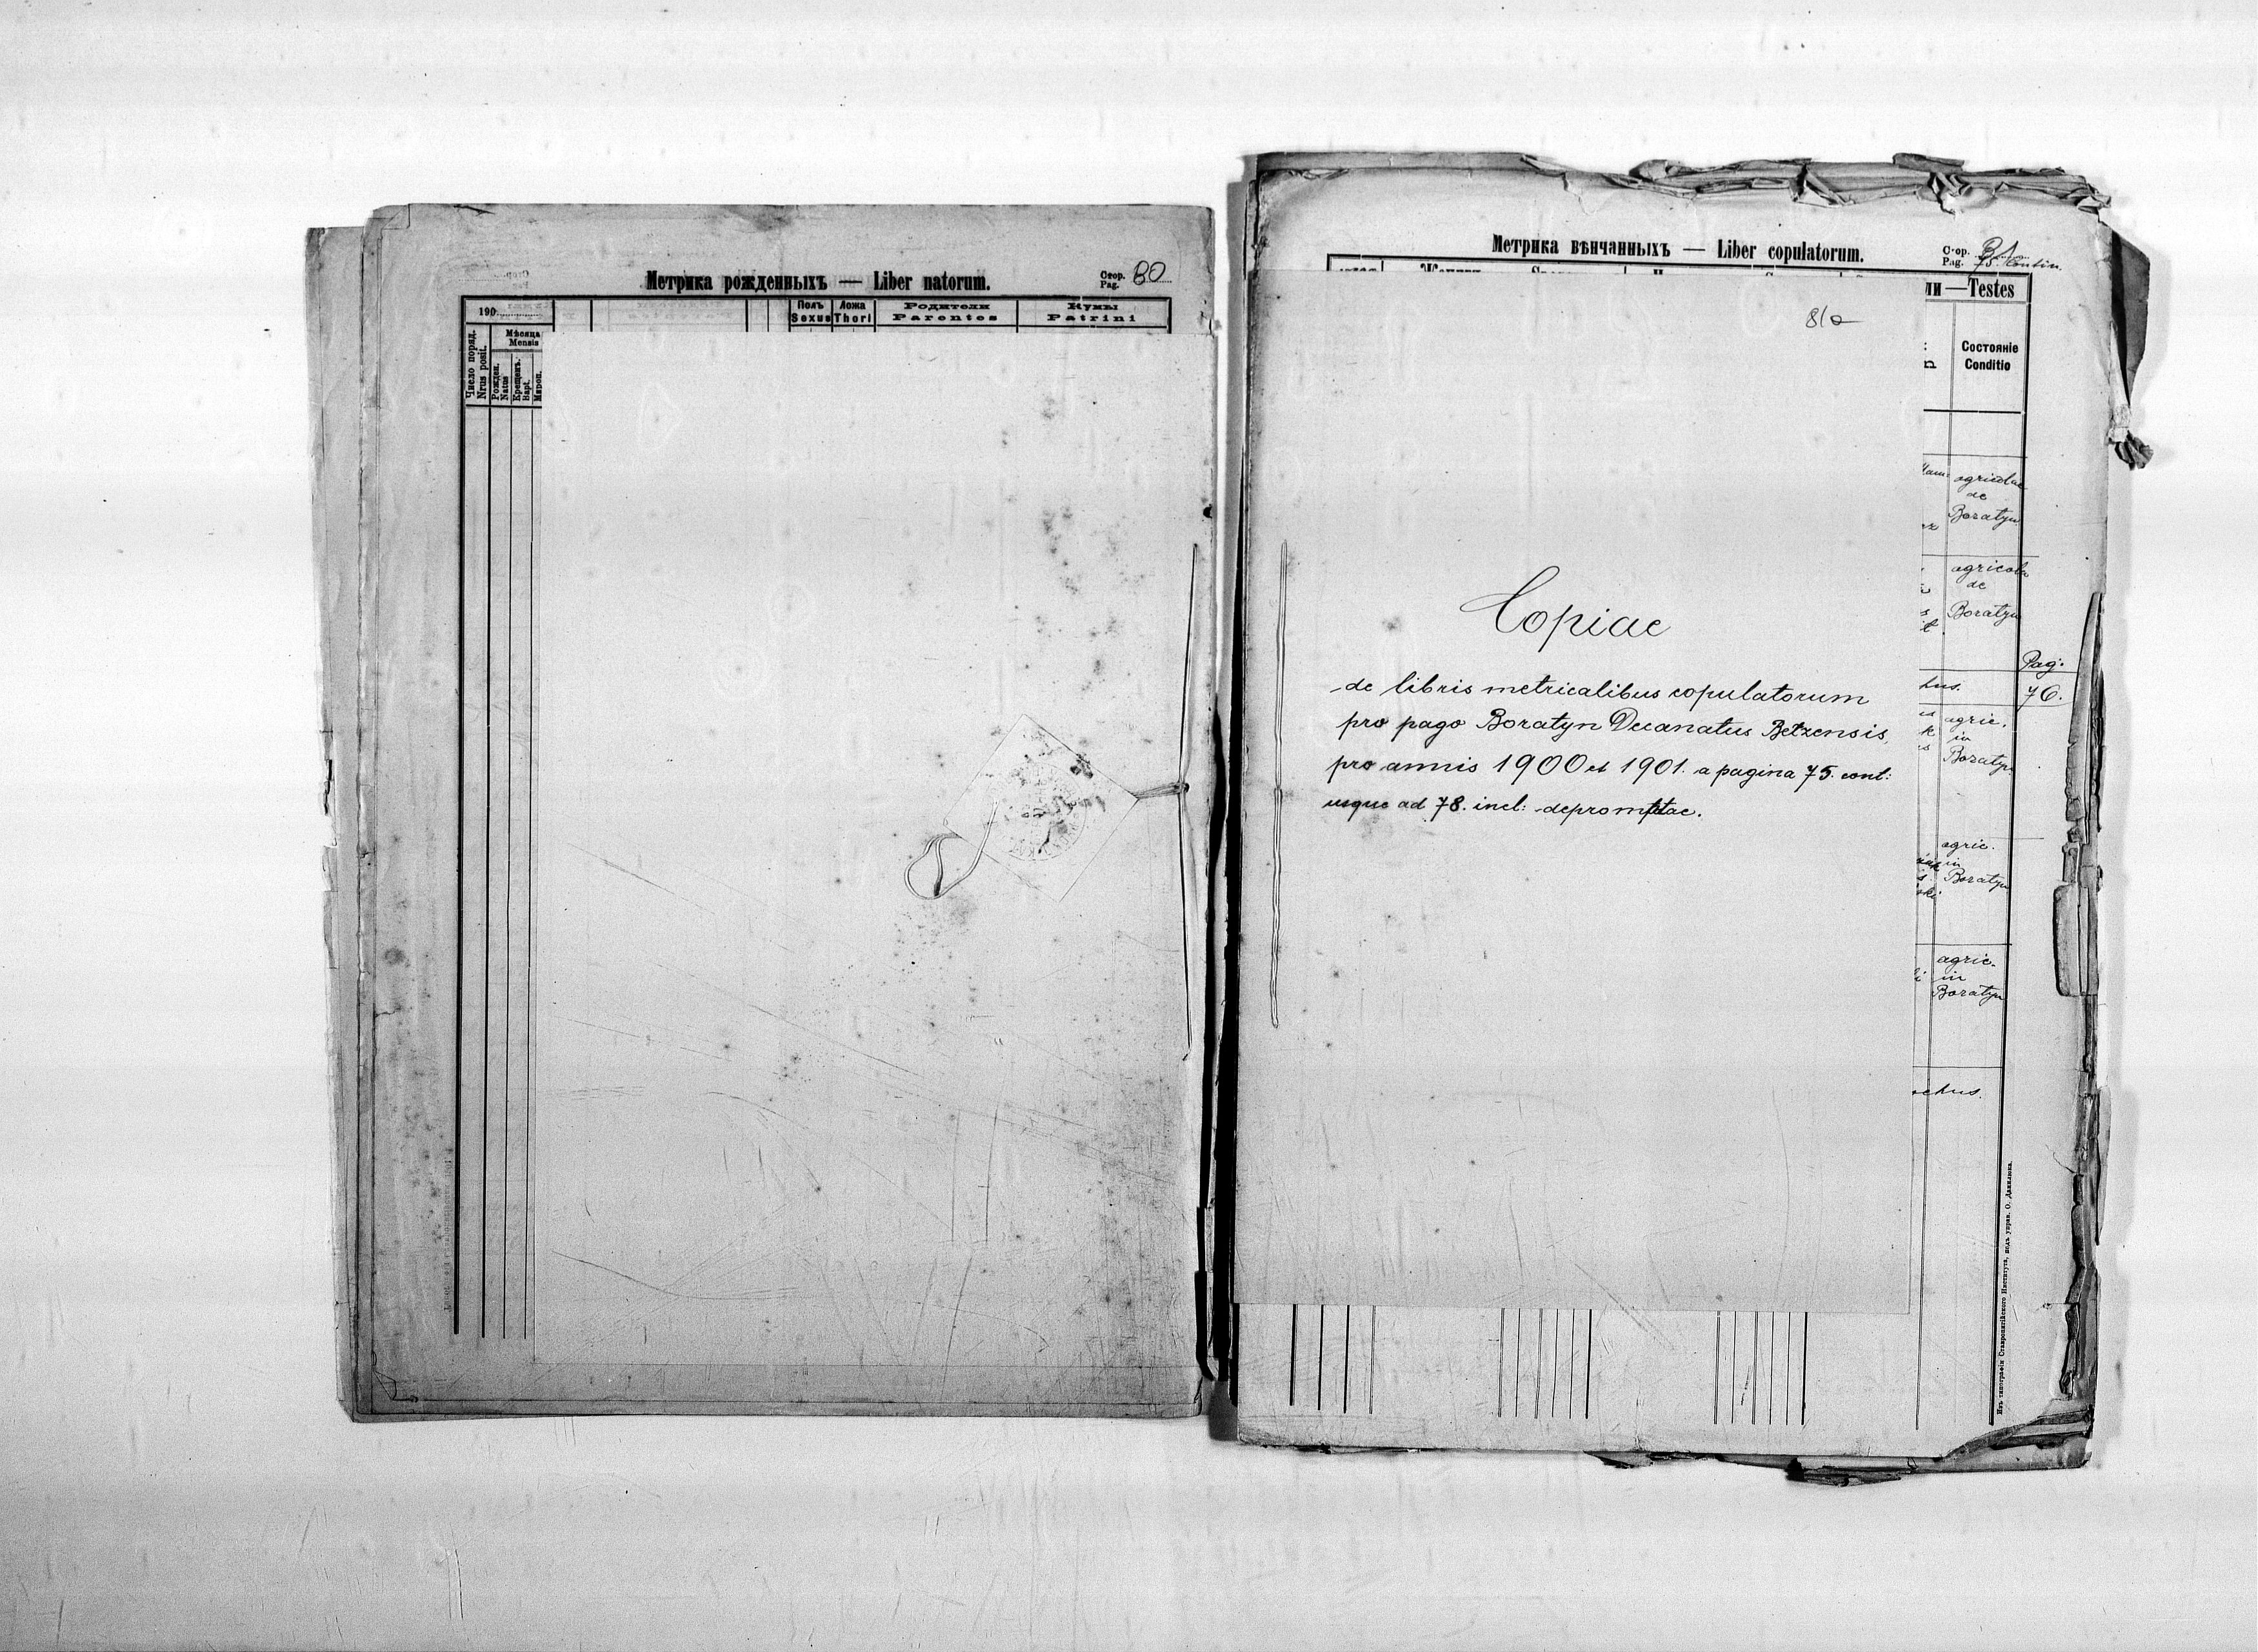 Метрика рожденныхъ — Liber natorum.
Стор.
Pag. 80
190
Полъ
Sexus
Ложа
Thori
Родители
Parentes
Кумы
Patrini
Число поряд.
Nrus posit.
Мѣсяца
Mensis
Рожден.
Natus
Крещенъ.
Bapt.
Мѵроп.
Метрика вѣнчанныхъ — Liber copulatorum.
Стор. 81
Pag. 75. Contin.
ли — Testes
Состояніе
Conditio
81a
agricolae
de
Boratyn
agricola
de
Boratyn
Copiae
de libris metricalibus copulatorum
pro pago Boratyn Decanatus Betzensis,
pro annis 1900 et 1901. a pagina 75. cont:
usque ad 78. incl: depromptae.
Pag:
76.
agric.
in
Boratyn
agric.
in
Boratyn
agric.
in
Boratyn
ochus.
Изъ типографіи Ставропигійского Института, подъ управ. О. Данилюка.